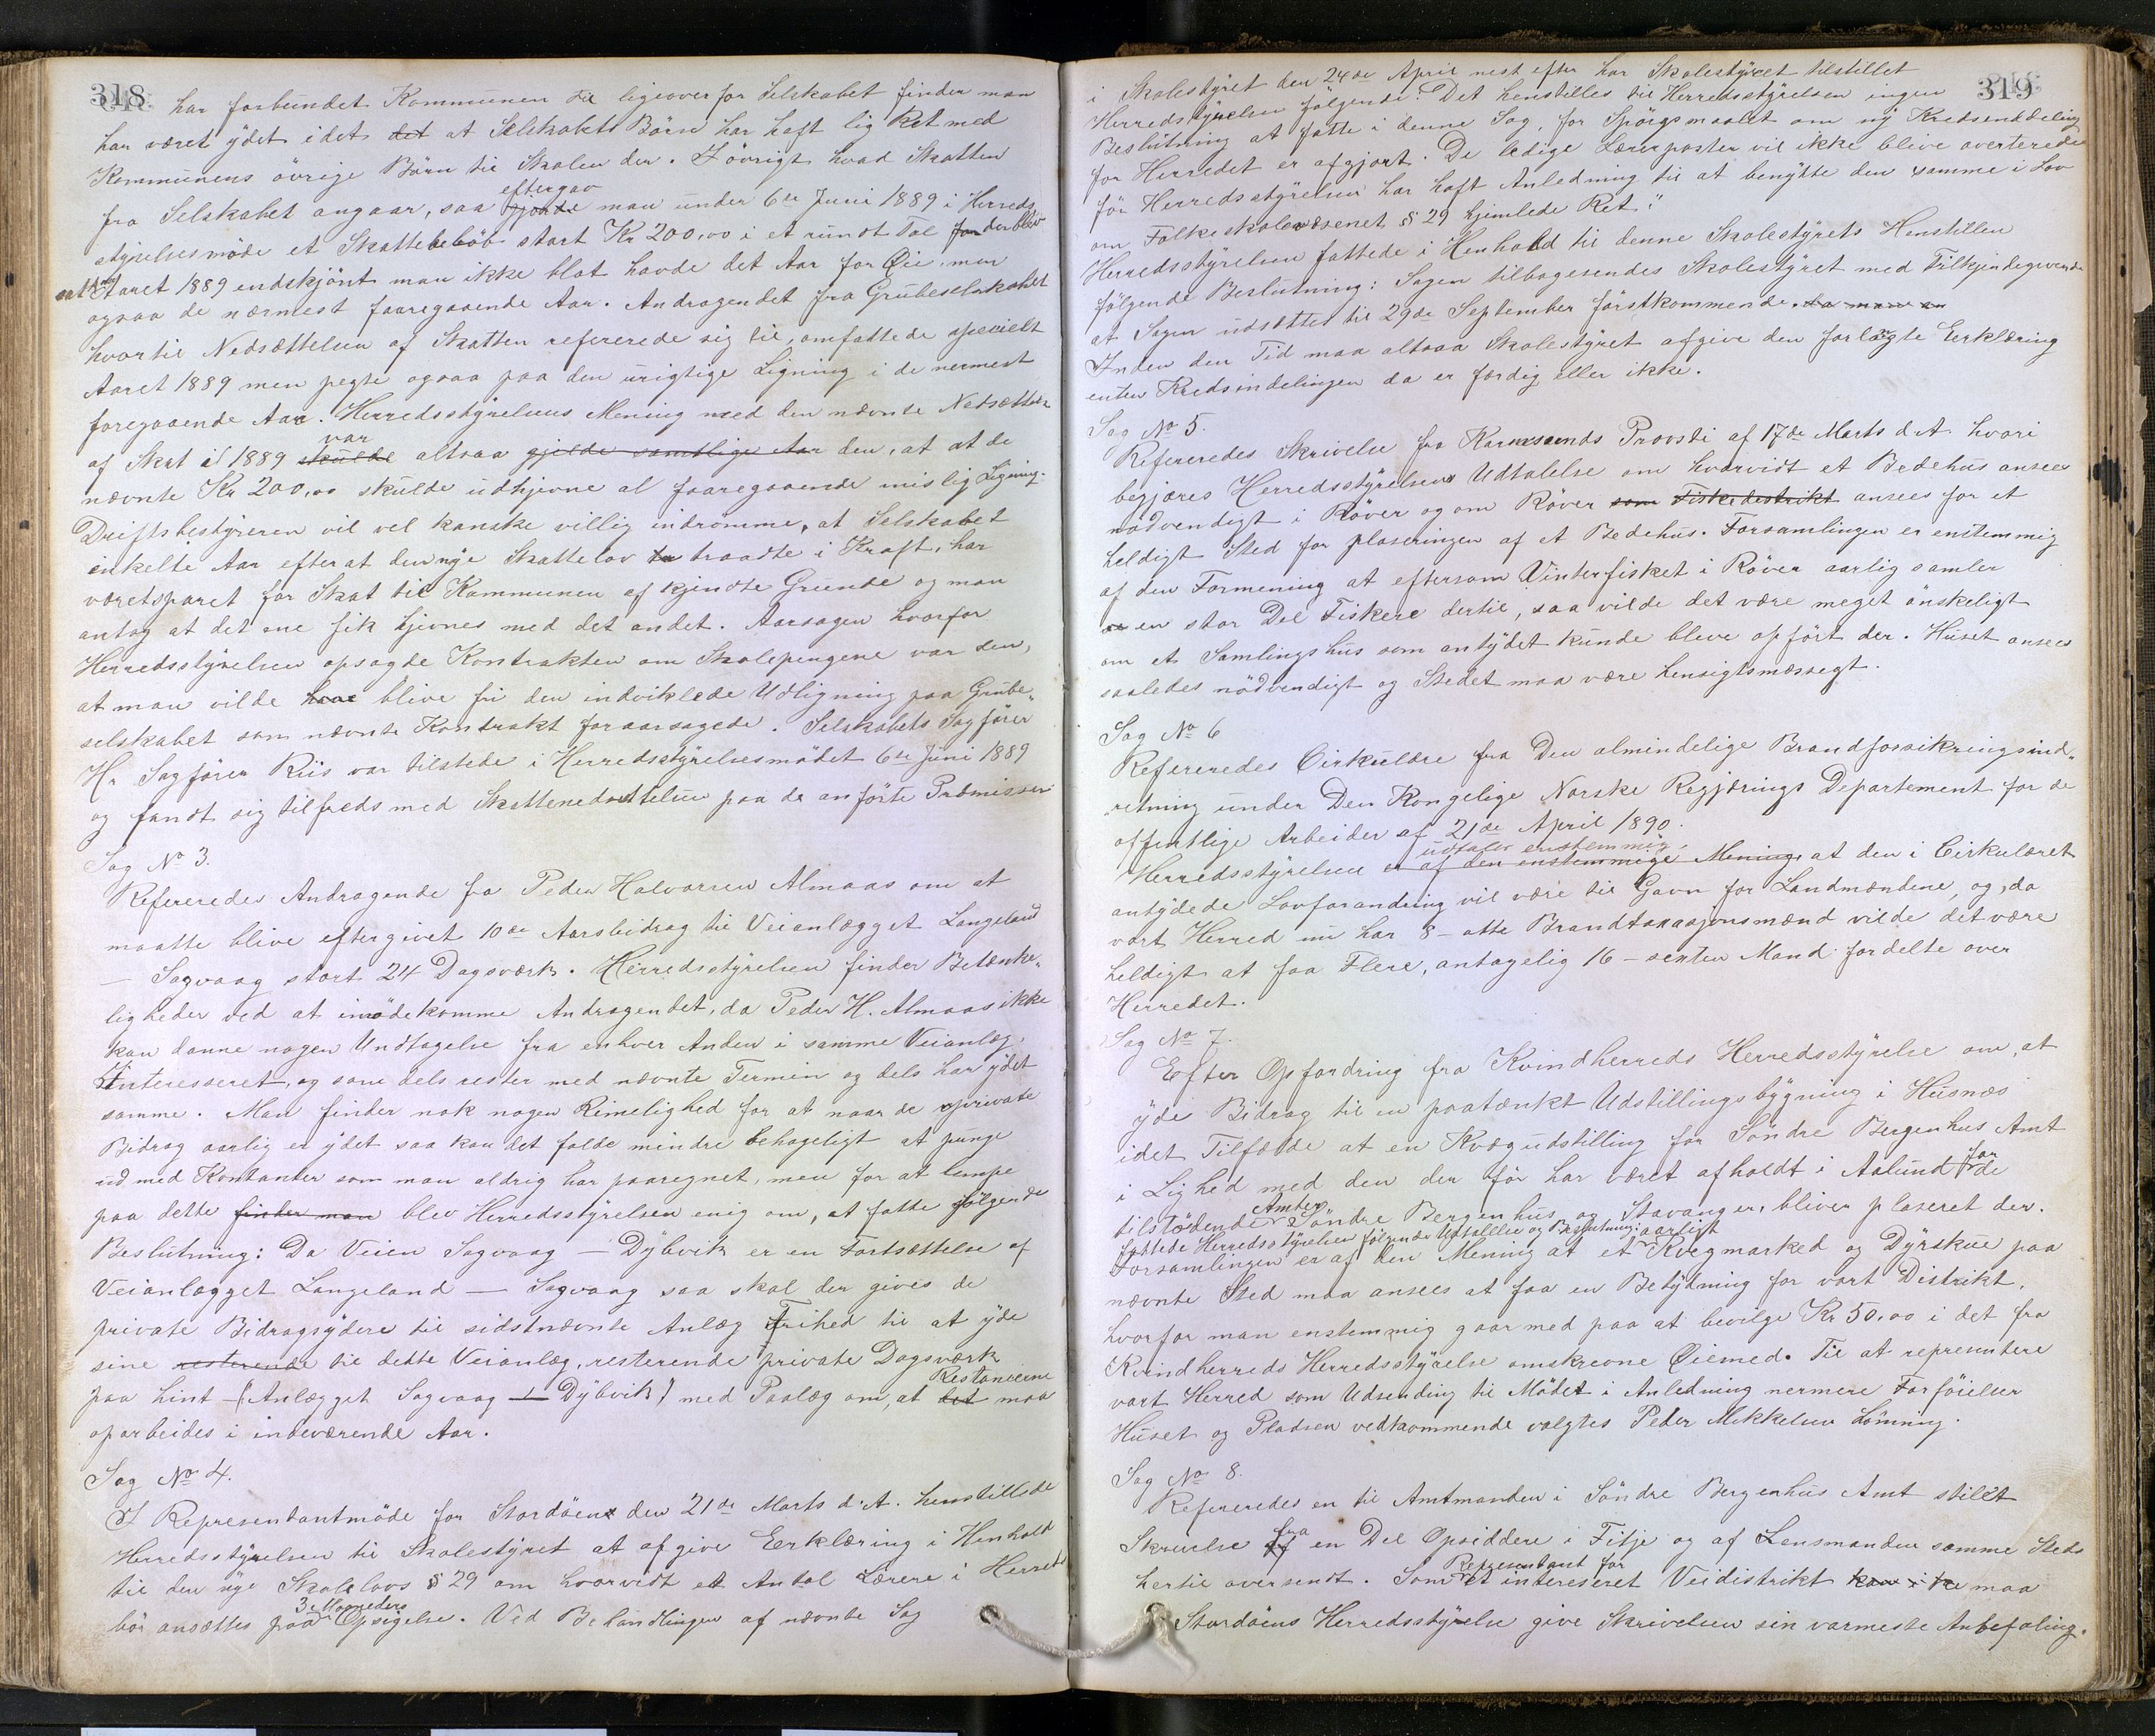 318
har forbundet Kommunen til ligeover for Selskabet finder man
har været ydet idet det at Selskabets Börn har haft lig Ret med
Kommunens övrige Börn til Skolen der. I övrigt hvad Skatten
eftergav
fra Selskabet angaar, saa gjorde man under 6te Juni 1889 i Herreds
styrelsesmöde et Skattebelöb stort Kr 200,00 i et rundt Tal for der blev
Aaret 1889 endskjönt man ikke blot havde det Aar for Öie, men
ogsaa de nærmest faaregaaende Aar. Andragendet fra Grubeselskabet
hvortil Nedsættelsen af Skatten refererede sig til, omfattede specielt
Aaret 1889 men pegte ogsaa paa den urigtige Ligning i de nermest
foregaaende Aar. Herredsstyrelsens Mening med den nævnte Nedsættelse
var
af Skat i 1889 skulde altsaa gjelde samtlige Aar den, at at de
nævnte Kr 200,00 skulde udhjevne al faaregaaende mislig Ligning.
Driftsbestyreren vil vel kanske villig indrömme, at Selskabet
enkelte Aar efter at den nye Skattelov traadte i Kraft, har
været sparet for Skat til Kommunen af kjendte Grunde og man
antog at det ene fik hjevnes med det andet. Aarsagen hvorfor
Herredsstyrelsen opsagde Kontrakten om Skolepengene var den,
at man vilde have blive fri den indviklede Udligning paa Grube„
selskabet som nævnte Kontrakt foraarsagede. Selskabets Sagförer
Hr Sagförer Riis var tilstede i Herredsstyrelsesmödet 6te Juni 1889
og fandt sig tilfreds med Skattenedsettelsen paa de anförte Præmisser
Sag No 3.
Refereredes Andragende fra Peder Halvorsen Almaas om at
maatte blive eftergivet 10de Aarsbidrag til Veianlægget Langeland
— Sagvaag stort 24 Dagsværk. Herredsstyrelsen finder Betænke„
ligheder ved at imödekomme Andragendet, da Peder H. Almaas ikke
kan danne nogen Undtagelse fra enhver Anden i samme Veianlæg,
Interesseret, og som dels rester med nævnte Termin og dels har ydet
samme. Man finder nok nogen Rimelighed for at naar de private
Bidrag aarlig er ydet saa kan det falde mindre behageligt at punge
ud med Kontanter som man aldrig har paaregnet, men for at lempe
paa dette finder man blev Herredsstyrelsen enig om, at fatte fölgende
Beslutning: Da Veien Sagvaag — Dybvik er en Fortsættelse af
Veianlægget Langeland — Sagvaag saa skal der gives de
private Bidragsydere til sidstnævnte Anlæg Frihed til at yde
sine resterende til dette Veianlæg, resterende private Dagsværk
Restancerne
paa hint (Anlægget Sagvaag — Dybvik) med Paalæg om, at det maa
oparbeides i indeværende Aar.
Sag No 4.
I Representantmöde for Stordöen den 21de Marts d.A. henstillede
Herredsstyrelsen til Skolestyret at afgive Eerklæring i Henhold
til den nye Skolelovs § 29 om hvorvidt et Antal Lærere i Herred
3 Maaneders
bör ansættes paa Opsigelse. Ved Behandlingen af nævnte Sag
319
i Skolestyret den 24de April nest efter har Skolestyreet tilstillet
Herredsstyrelsen fölgende: "Det henstilles til Herredsstyrelsen ingen
Beslutning at fatte i denne Sag, för Spörgsmaalet om ny Kredsenddeling
for Herredet er afgjort. De ledige Lærerposter vil ikke blive averterede
för Herredsstyrelsen har haft Anledning til at benytte den samme i Lov
om Folkeskolevæsenet § 29 hjemlede Ret."
Herredsstyrelsen fattede i Henhold til denne Skolestyrets Henstillen
fölgende Beslutning: Sagen tilbagesendes Skolestyret med Tilkjendegivende
at Sagen udsættes til 29de September förstkommende. da man an
Inden den Tid maa altsaa Skolestyret afgive den forlangte Eerklæring
enten Kredsindelingen da er færdig eller ikke.
Sag No 5.
Refereredes Skrivelse fra Karmsunds Provsti af 17de Marts d.A. hvori
begjæres Herredsstyrelsens Udtalelse om hvorvidt et Bedehus ansees
nödvendigt i Röver og om Röver som Fiskedistrikt ansees for et
heldigt Sted for plaseringen af et Bedehus. Forsamlingen er enstemmig
af den Formening at eftersom Vinterfisket i Röver aarlig samler
en stor Del Fiskere dertil, saa vilde det være meget önskeligt
om et Samlingshus som antydet kunde bleve opfört der. Huset ansees
saaledes nödvendigt og Stedet maa være hensigtsmæssegt.
Sag No 6
Refereredes Cirkulære fra Den almindelige Brandforsikringsind„
retning under Den Kongelige Norske Regjærings Departement for de
offentlige Arbeider af 21de April 1890.
udtaler enstemmig,
Herredsstyrelsen er af den enstemmige Mening, at den i Cirkulæret
antydede Lovforandring vil være til Gavn for Landmændene, og, da
vort Herred nu har 8 - otte Brandtaxasjonsmænd vilde det være
heldigt at faa Flere, antagelig 16 - sexten Mand fordelte over
Herredet.
Sag No 7.
Efter Opfordring fra Kvindherreds Herredsstyrelse om, at
yde Bidrag til en paatænkt Udstillingsbygning i Husnæs
idet Tilfælde at en Kvægudstilling for Söndre Bergenhus Amt
i Lighed med den der för har været afholdt i Aalund for de
Amter
tilstödende Söndre Bergenhus og Stavanger, bliver plaseret der.
fattede Herredsstyrelsen fölgende Udtalelse og Beslutning: aarligt
Forsamlingen er af den Mening at et Kvegmarked og Dyrskue paa
nævnte Sted maa ansees at faa en Betydning for vort Distrikt,
hvorfor man enstemmig gaar med paa at bevilge Kr 50,00 i det fra
Kvindherreds Herredsstyrelse omskrevne Öiemed. Til at representere
vort Herred som Udsending til Mödet i Anledning nermere Forföielser
Huset og Pladsen vedkommende valgtes Peder Mikkelsen Lönning.
Sag No 8.
Refereredes en til Amtmanden i Söndre Bergenhus Amt stilet
fra
Skrivelse af en Del Opsiddere i Fitje og af Lensmanden samme Steds
Representant for
hertil oversendt. Som et intereseret Veidistrikt kan ikke maa
Stordöens Herredsstyrelse give Skrivelsen sin varmeste Anbefaling.